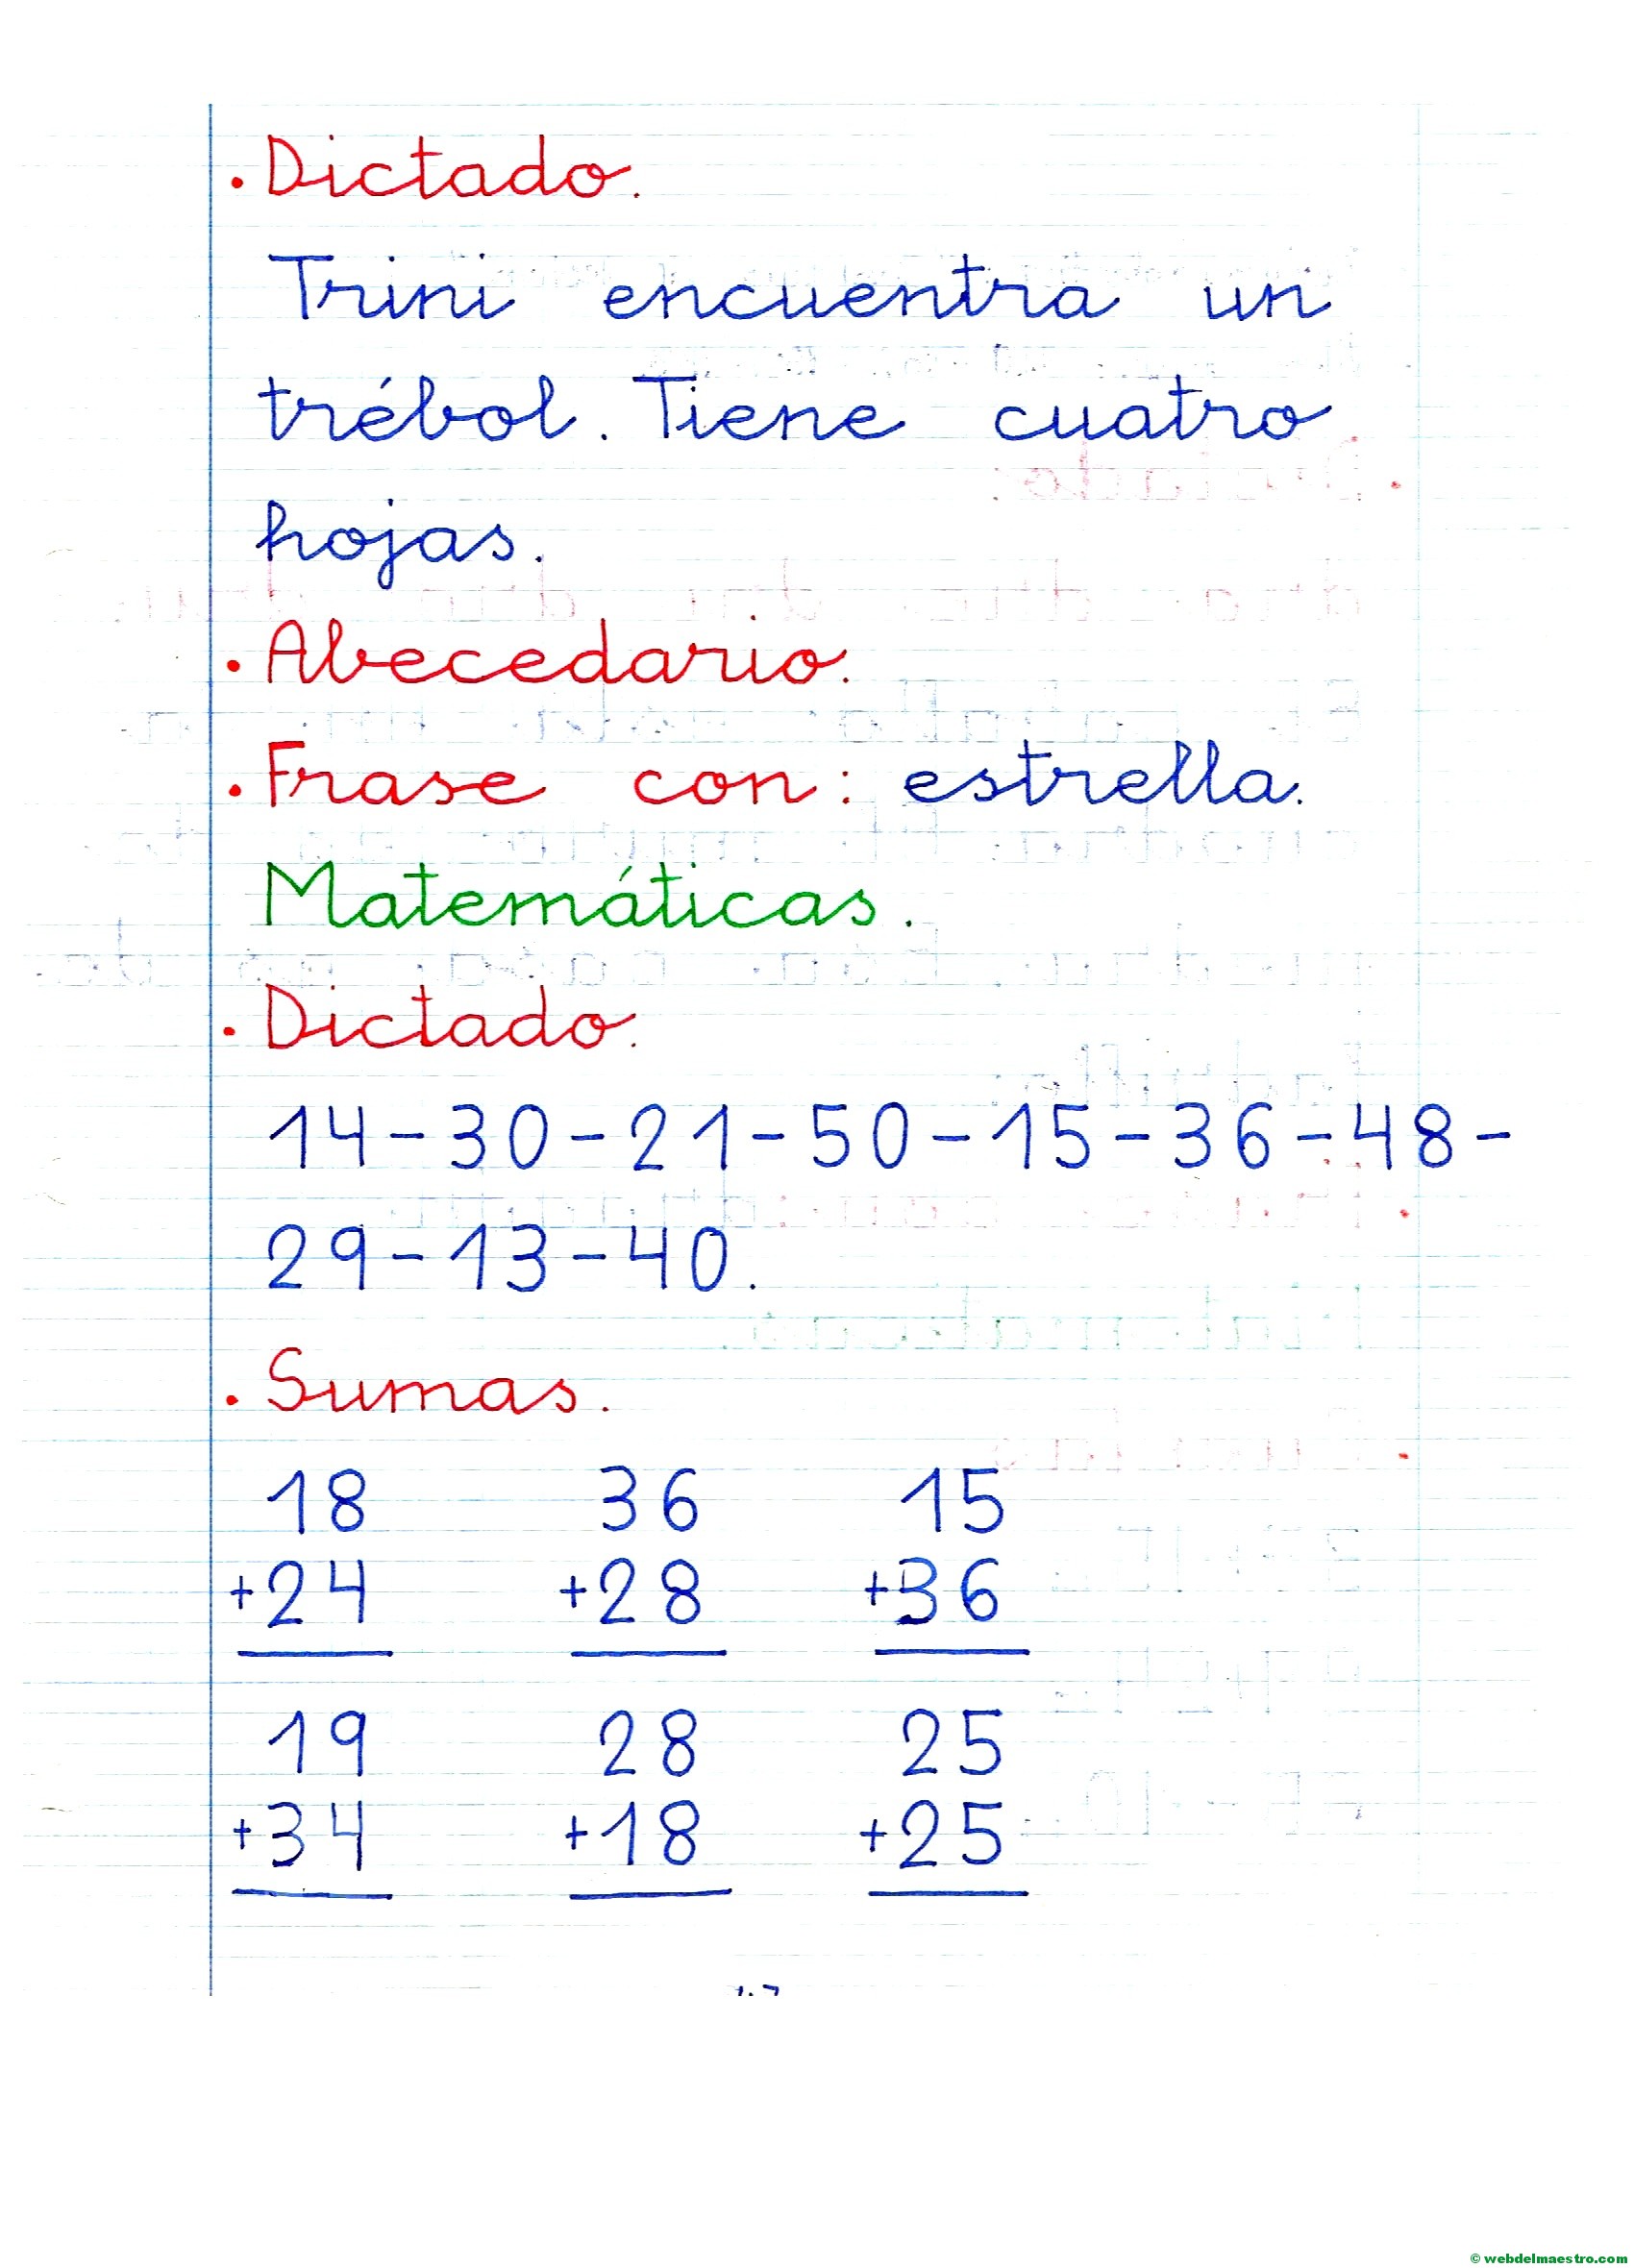 · Dictado.
Trini encuentra un
trébol. Tiene cuatro
hojas.
· Abecedario.
· Frase con: estrella.
Matemáticas.
· Dictado.
14-30-21-50-15-36-48-
29-13-40.
· Sumas.
18 36 15
+24 +28 +36
19 28 25
+34 +18 +25
© webdelmaestro.com